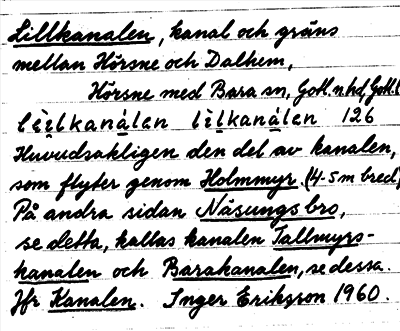 Lillkanalen, kanal och gräns
mellan Hörsne och Dalhem,
Hörsne med Bara sn, Gotl. n hd, Gotl. l
lìlkanàlen lìlkanàlen 126
Huvudsakligen den del av kanalen,
som flyter genom Holmmyr. (4-5 m bred)
På andra sidan Näsungs bro,
se detta, kallas kanalen Tallmyrs-
kanalen och Barakanalen, se dessa.
Jfr Kanalen. Inger Eriksson 1960.